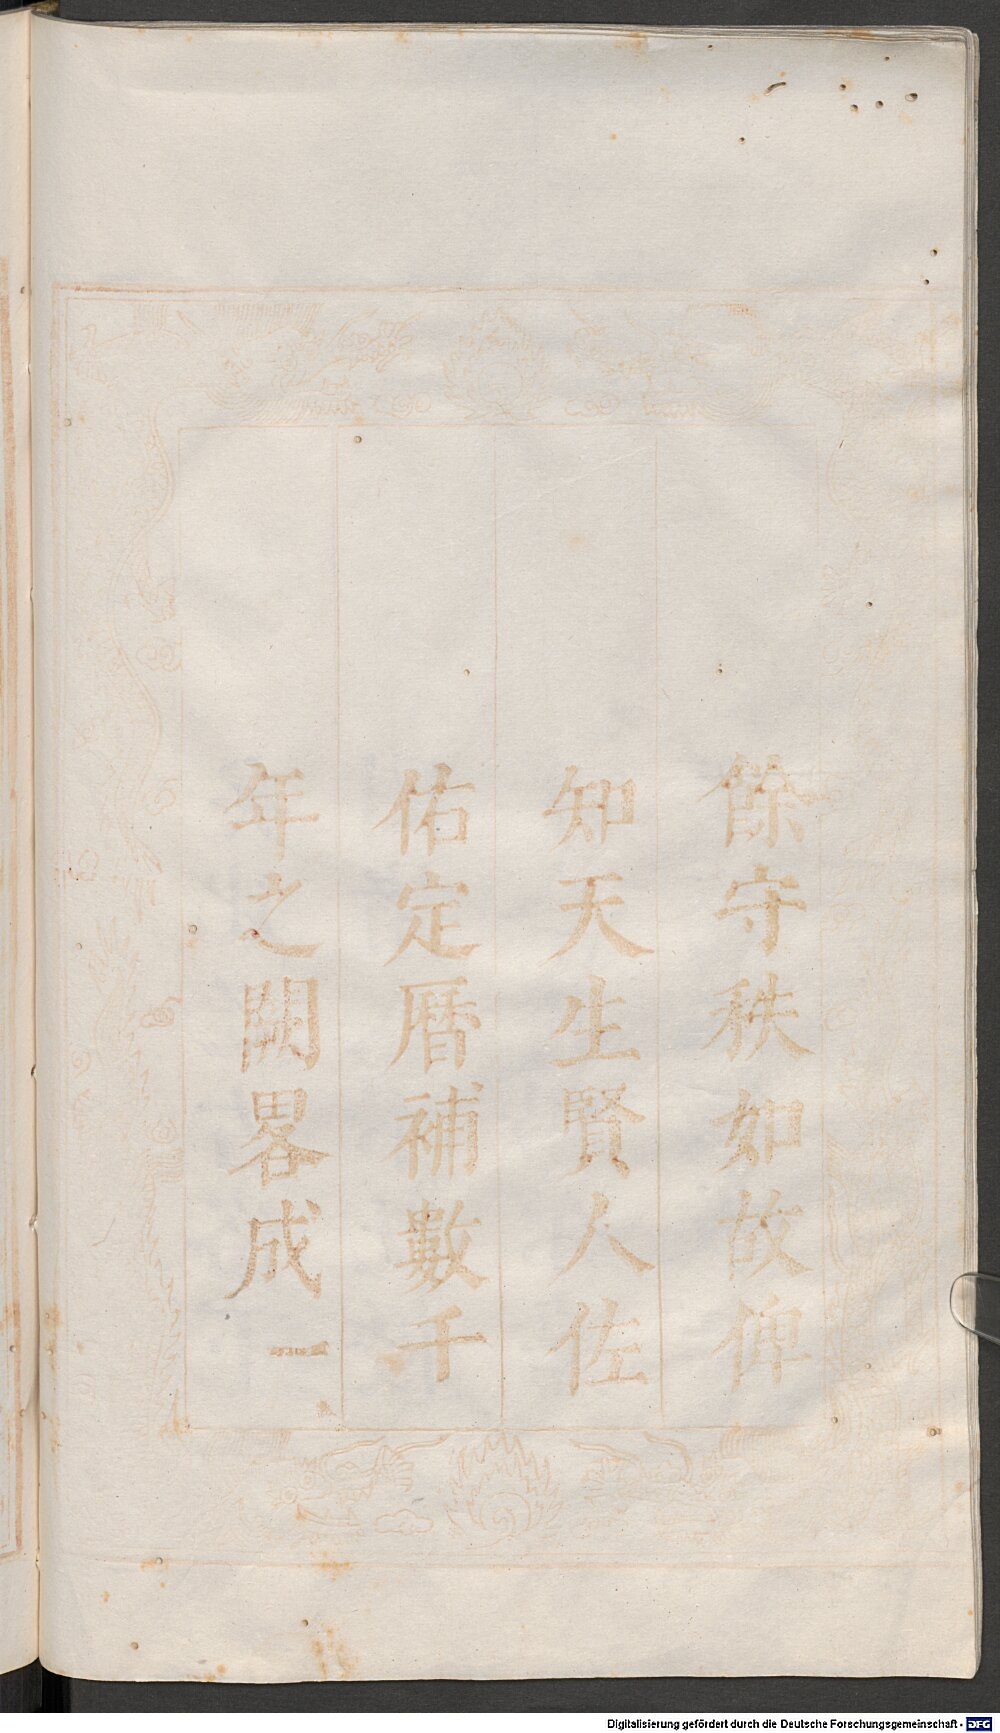 餘守秩如故俾
知天生賢人佐
佑定曆補數千
年之闕畧成一
Digitalisierung gefördert durch die Deutsche Forschungsgemeinschaft - DFG